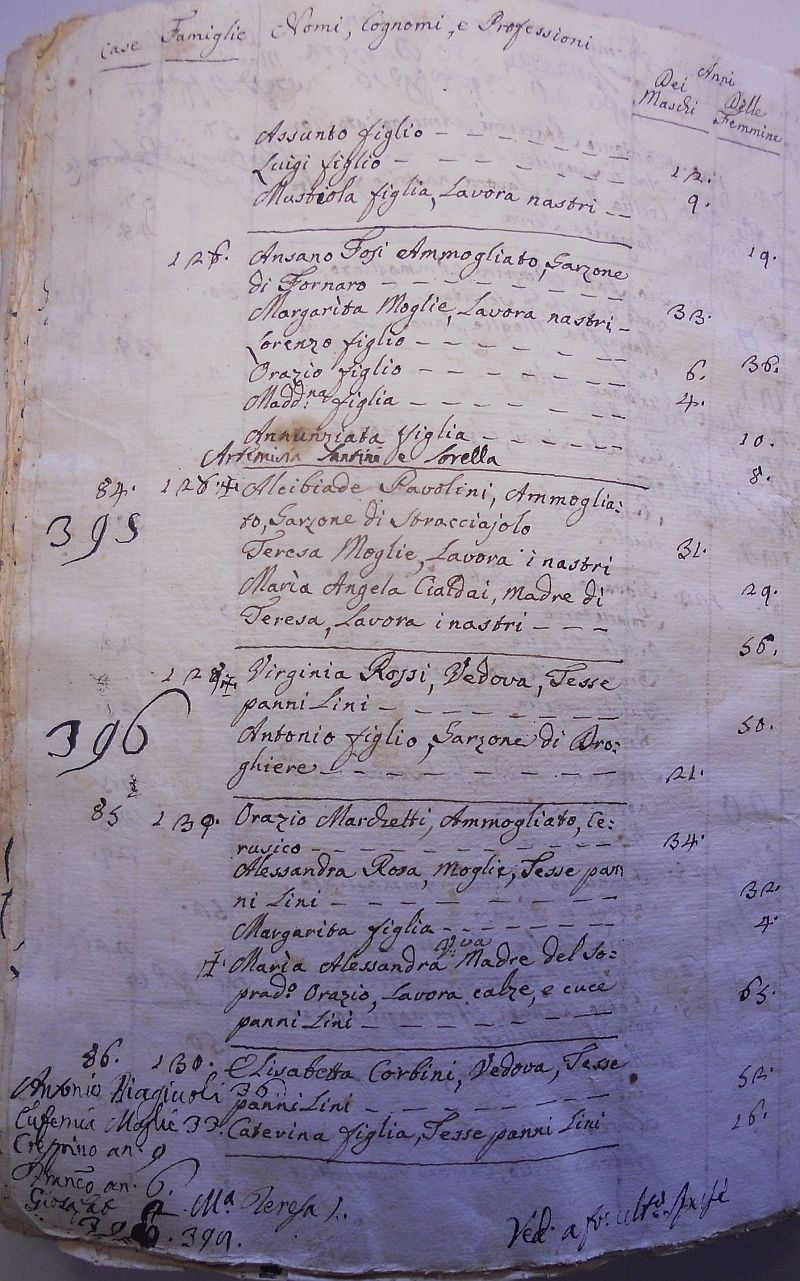 Case Famiglie Nomi, Cognomi, e Professioni
Anni
Dei Maschi
Delle Femmine
Assunto figlio
Luigi figlio 12.
Mustiola figlia, Lavora nastri 9.
19.
126. Ansano Fosi Ammogliato, Garzone
di Fornaro
Margarita Moglie, Lavora nastri 33.
Lorenzo figlio
Orazio figlio 6. 36.
Madd.na figlia 4.
Annunziata figlia 10.
Artemisia e Sorella 8.
84. 128. Alcibiade Pavolini, Ammoglia:
395 to, Garzone di Stracciajolo
Teresa Moglie, Lavora i nastri 31.
Marìa Angela Cialdai, madre di 29.
Teresa, Lavora i nastri
56.
Virginia Rossi, Vedova, Tesse
panni Lini
396 Antonio figlio, Garzone di Dro: 50.
ghiere 21.
85 Orazio Marchetti, Ammogliato, Ce:
rusico 34.
Alessandra Rosa, Moglie, Tesse pan
ni Lini 32.
Margarita figlia 4.
Marìa Alessandra V.va Madre del So:
prad.o Orazio, Lavora calze, e cuce 65.
panni Lini
86. 130. Elisabetta Corbini, Vedova, Tesse
Antonio 36 panni Lini 52.
Eufemia Moglie 33. Caterina figlia, Tesse panni Lini 16.
Crespino an. 9
Franc.o an. 6.
M.a Teresa 1.